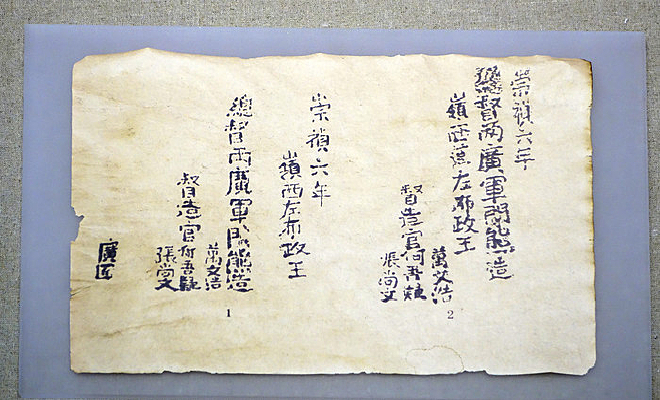 崇禎六年
總督兩廣軍門熊造
嶺西道左布政王
萬文浩
督造官何吾
張尚文
2
崇禎六年
嶺西左布政王
總督兩廣軍門熊造
萬文浩
督造官何吾騶
張尚文
1
廣匠